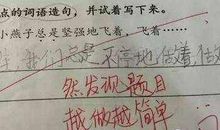 点的词语造句，并试着写下来。
小燕子总是坚强地飞着，飞着……
我们总是不停地做着，做
然发现题目
越做越简单